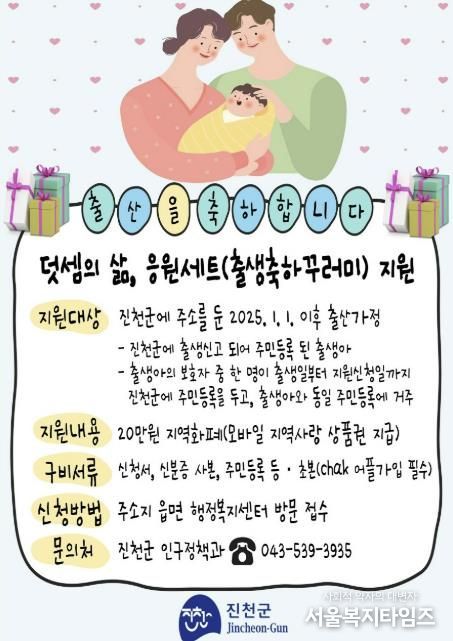 출산을축하합니다
덧셈의 삶, 응원세트(출생축하꾸러미) 지원
지원대상 진천군에 주소를 둔 2025. 1. 1. 이후 출산가정
- 진천군에 출생신고 되어 주민등록 된 출생아
- 출생아의 보호자 중 한 명이 출생일부터 지원신청일까지
진천군에 주민등록을 두고, 출생아와 동일 주민등록에 거주
지원내용 20만원 지역화폐(모바일 지역사랑 상품권 지급)
구비서류 신청서, 신분증 사본, 주민등록 등·초본(chak 어플가입 필수)
신청방법 주소지 읍면 행정복지센터 방문 접수
문의처 진천군 인구정책과 ☎ 043-539-3935
진천군
Jincheon-Gun
사회적 약자의 대변자
서울복지타임즈